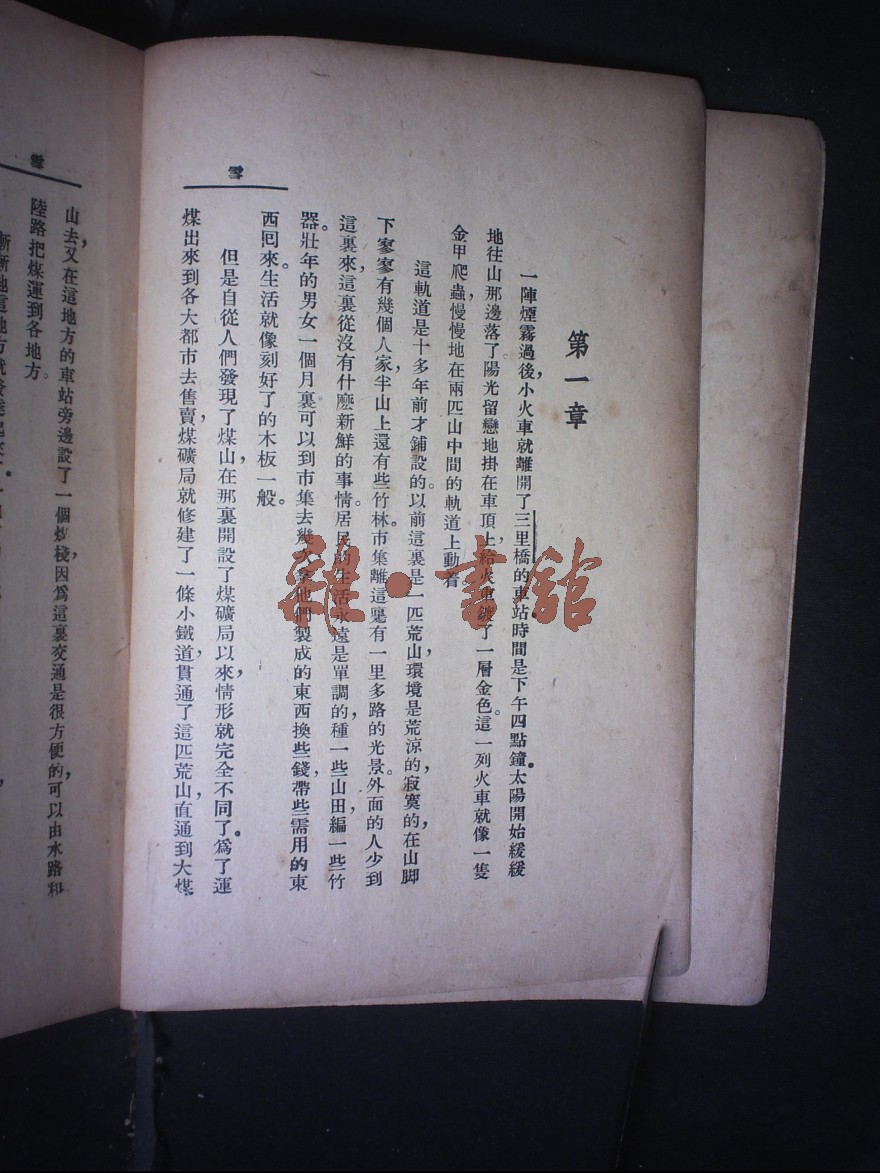 雪
第一章
一陣煙霧過後，小火車就離開了三里橋的車站。時間是下午四點鐘。太陽開始緩緩
地往山那邊落了。陽光留戀地掛在車頂上，給火車鍍了一層金色。這一列火車就像一隻
金甲爬蟲，慢慢地在兩匹山中間的軌道上動着
這軌道是十多年前才鋪設的。以前這裏是一匹荒山，環境是荒涼的，寂寞的，在山脚
下寥寥有幾個人家，半山上還有些竹林。市集離這裏有一里多路的光景。外面的人少到
這裏來，這裏從沒有什麽新鮮的事情。居民的生活永遠是單調的，種一些山田，編一些竹
器。壯年的男女一個月裏可以到市集去幾次，拿他們製成的東西換些錢，帶些需用的東
西囘來。生活就像刻好了的木板一般。
但是自從人們發現了煤山，在那裏開設了煤礦局以來，情形就完全不同了。爲了運
煤出來到各大都市去售賣，煤礦局就修建了一條小鐵道，貫通了這匹荒山，直通到大煤
雪
山去，又在這地方的車站旁邊設了一個煤棧，因爲這裏交通是很方便的，可以由水路和
陸路把煤運到各地方。
漸漸地這地方就發達起來了。
雜·書館